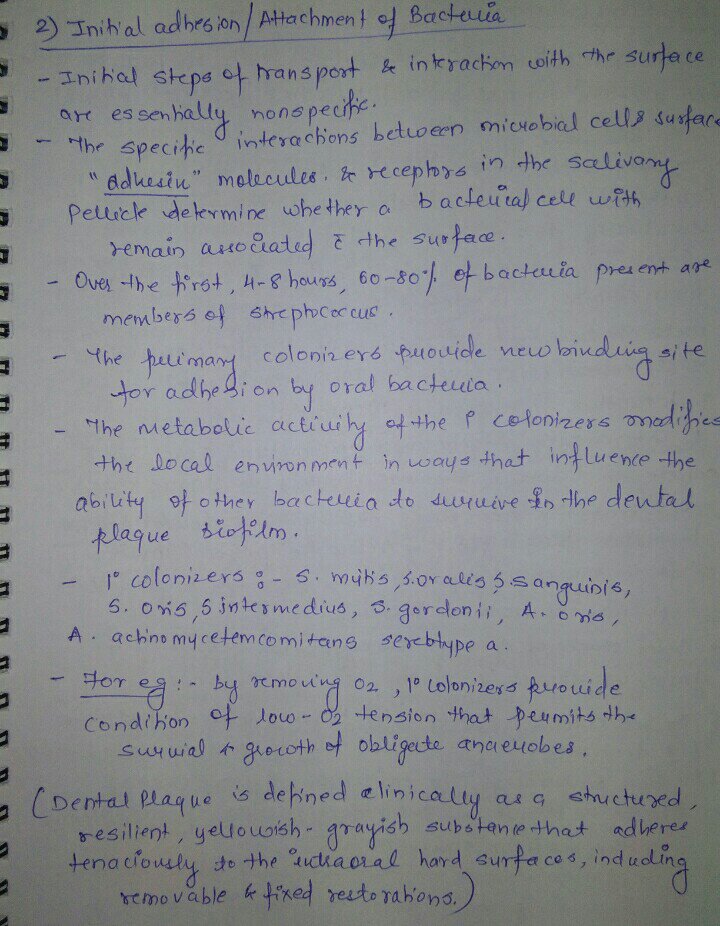 2) Initial adhesion/Attachment of Bacteria
- Initial steps of transport & interaction with the surface
are essentially nonspecific.
- The specific interactions between microbial cell & surface
"adhesin" molecules. & receptors in the salivary
Pellicle determine whether a bacterial cell with
remain associated c̄ the surface.
- Over the first, 4-8 hours, 60-80% of bacteria present are
members of streptococcus.
- The primary colonizers provide new binding site
for adhesion by oral bacteria.
- The metabolic activity of the P colonizers modifies
the local environment in ways that influence the
ability of other bacteria to survive in the dental
plaque biofilm.
- 1° colonizers :- S. mitis, S. oralis, S. sanguinis,
S. oris, S intermedius, S. gordonii, A. oris,
A. actinomycetemcomitans serotype a.
- For eg :- by removing O2, 1° colonizers provide
condition of low-O2 tension that permits the
survial & growth of obligate anaerobes.
(Dental Plaque is defined clinically as a structured,
resilient, yellowish-grayish substance that adheres
tenaciously to the intraoral hard surfaces, including
removable & fixed restorations.)